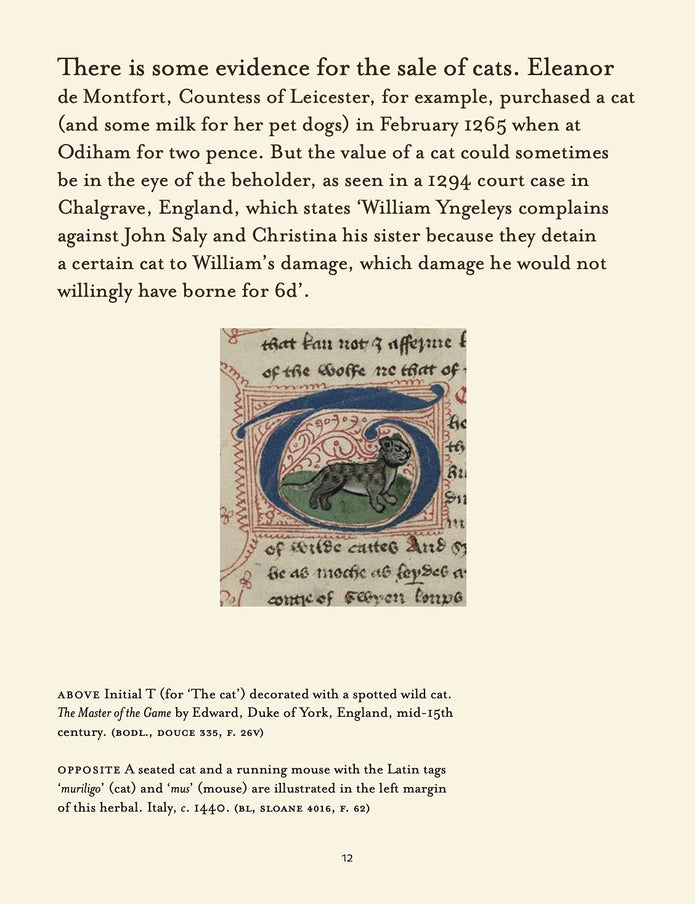 There is some evidence for the sale of cats. Eleanor
de Montfort, Countess of Leicester, for example, purchased a cat
(and some milk for her pet dogs) in February 1265 when at
Odiham for two pence. But the value of a cat could sometimes
be in the eye of the beholder, as seen in a 1294 court case in
Chalgrave, England, which states ‘William Yngeleys complains
against John Saly and Christina his sister because they detain
a certain cat to William’s damage, which damage he would not
willingly have borne for 6d’.
that kan not
of the Wolfe ne that of
T
of wilde cattes And
be as moche as
ABOVE Initial T (for ‘The cat’) decorated with a spotted wild cat.
The Master of the Game by Edward, Duke of York, England, mid-15th
century. (BODL., DOUCE 335, F. 26V)
OPPOSITE A seated cat and a running mouse with the Latin tags
‘muriligo’ (cat) and ‘mus’ (mouse) are illustrated in the left margin
of this herbal. Italy, c. 1440. (BL, SLOANE 4016, F. 62)
12